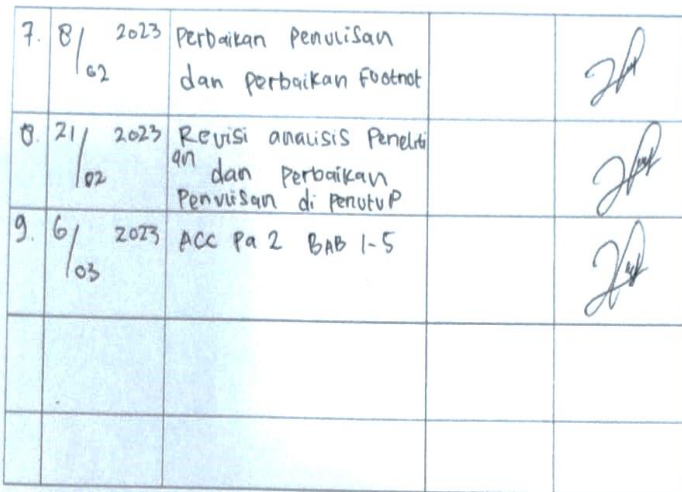 7. 8/02 2023 Perbaikan Penulisan
dan Perbaikan Footnot
8. 21/02 2023 Revisi analisis Peneliti
an dan Perbaikan
Penulisan di Penutup
9. 6/03 2023 ACC Pa 2 BAB 1-5